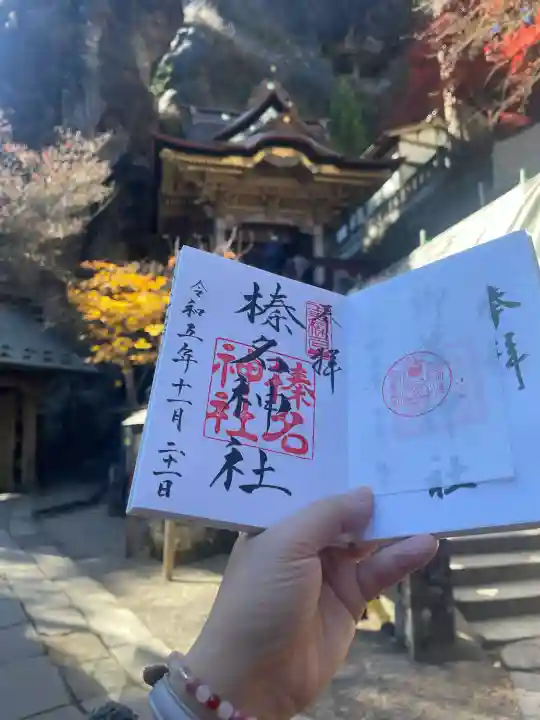 奉拝
榛名神社
榛名
神社
令和五年十一月二十一日
奉拝
社